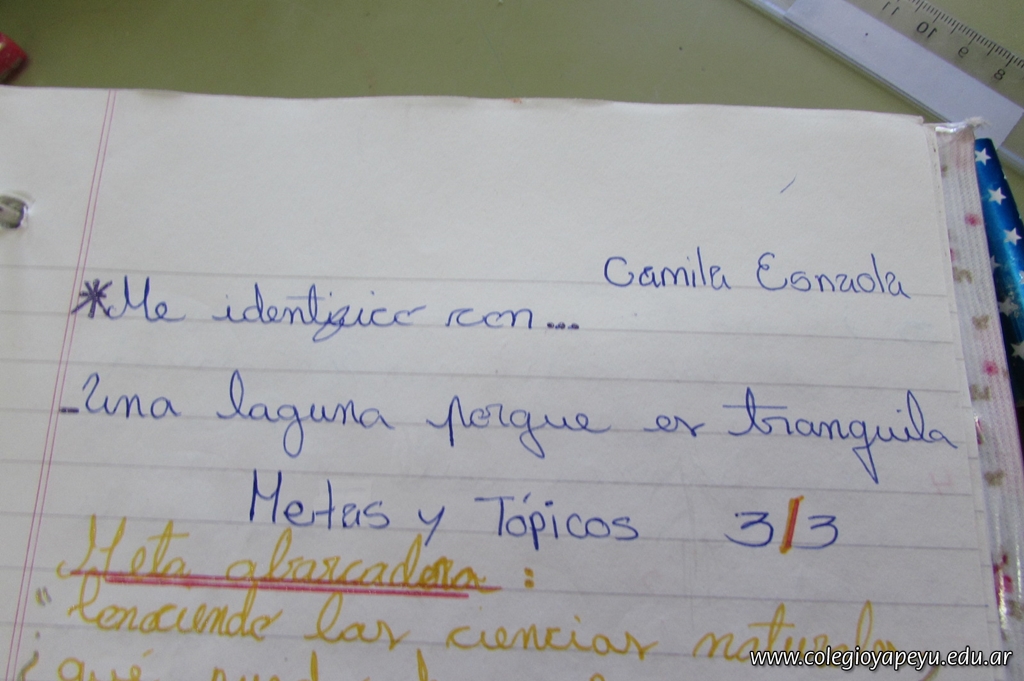 11 10 9 8
Camila
*Me identifico con...
-Una laguna porque es tranquila
Metas y Tópicos 3/3
Meta abarcadora :
"Conociendo las ciencias naturales
¿qué
www.colegioyapeyu.edu.ar